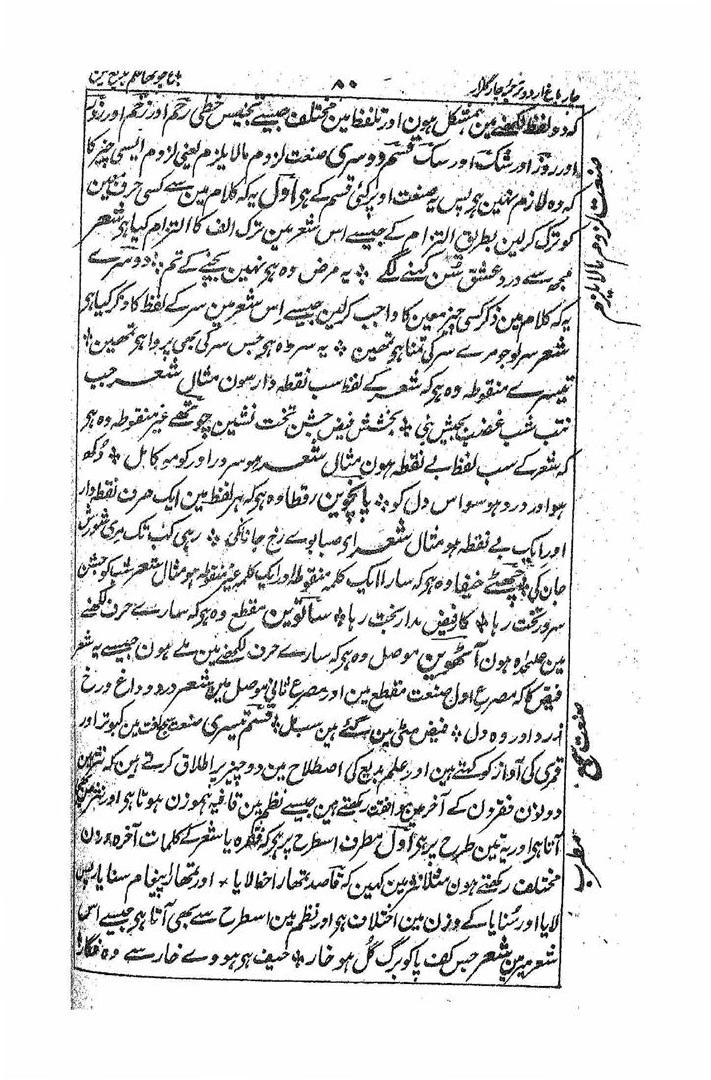 چار باغ اردو ترجمہ چار گلزار
۸۰
باغ چوتھا علم بدیع مین
کہ دو لفظ لکھنے مین ہمشکل ہون اور تلفظ مین مختلف جیسے تجنیس خطی رحم اور زخم اور زور
اور روز اور شک اور سگ قسم دوسری صنعت لزوم مالایلزم یعنی لزوم ایسی چیز کا
کہ وہ لازم نہین ہی پس یہ صنعت اوپر کئی قسم کے ہی اول یہ کہ کلام مین سے کسی حرف معین
کو ترک کرلین بطریق التزام کے جیسے اس شعر مین ترک الف کا التزام کیا ہی شعر
مجھ سے درد عشق سُن کہنے لگے ٭ یہ مرض وہ ہی نہین بچنے کے تم ٭ دوسرے
یہ کہ کلام مین ذکر کسی چیز معین کا واجب کرلین جیسے اِس شعر مین سر کے لفظ کا ذکر کیا ہی
شعر سر لو جو مرے سر کی تمنا ہی تمھین ٭ یہ سر وہ ہی جس سر کی بھی پروا ہی تمھین ٭
تیسرے منقوطہ وہ ہی کہ شعر کے لفظ سب نقطہ دار ہون مثال شعر جب
شب غضب بخشش نے ٭ بخشش فیض جشن تخت نشین چوتھے غیر منقوطہ وہ ہی
کہ شعر کے سب لفظ بے نقطہ ہون مثال شعر ہو سرور اور کو مہ کامل ٭ دُکھ
ہو اور درد ہو سو اس دل کو ٭ پانچوین رقطا وہ ہی کہ ہر لفظ مین ایک حرف نقطہ دار
اور ایک بے نقطہ ہو مثال شعر ای صبا بوے رخ جانان کی ٭ رہی کب تک مری شورش
جان کی ٭ چھٹے خیفا وہ ہی کہ سارا ایک کلمہ منقوط اور ایک کلمہ غیر منقوط ہو مثال شعر شب کو جشن
سرور تخت رہا ٭ کار فیض مدار بخت رہا ٭ ساتوین مقطع وہ ہی کہ سارے حرف لکھنے
مین علیحدہ ہون آٹھوین موصل وہ ہی کہ سارے حرف لکھنے مین ملے ہون جیسے یہ شعر
فیض کا کہ مصرع اول صنعت مقطع مین اور مصرع ثانی موصل مین شعر درد و داغ و رخ
زرد اور وہ دل ٭ فیض مٹی مین گئے ہین سب مل ٭ قسم تیسری صنعت سجع لغت مین کبوتر اور
قمری کی آواز کو کہتے ہین اور علم بدیع کی اصطلاح مین دو چیز پر اطلاق کرتے ہین کہ نثر مین
دو لون فقرون کے آخر مین موافقت رکھتے ہین جیسے نظم مین قافیہ ہموزن ہوتا ہی اور نثر مین سجع
آتا ہی اور یہ تین طرح پر ہی اول مطرف اسطرح پر ہی کہ فقرہ یا شعر کے کلمات آخرہ وزن
مختلف رکھتے ہون مثلا نثر مین کہین کہ قاصد تمھارا خط لایا ٭ اور تمھارا پیغام سنایا پس
لایا اور سُنایا کے وزن مین اختلاف ہی اور نظم مین اسطرح سے بھی آتا ہی جیسے اس
شعر مین شعر جس کف پا کو برگ گل ہو خار ٭ حیف ہی ہووے خار سے وہ فگار
صنعت لزوم مالایلزم
صنعت سجع
مطرف